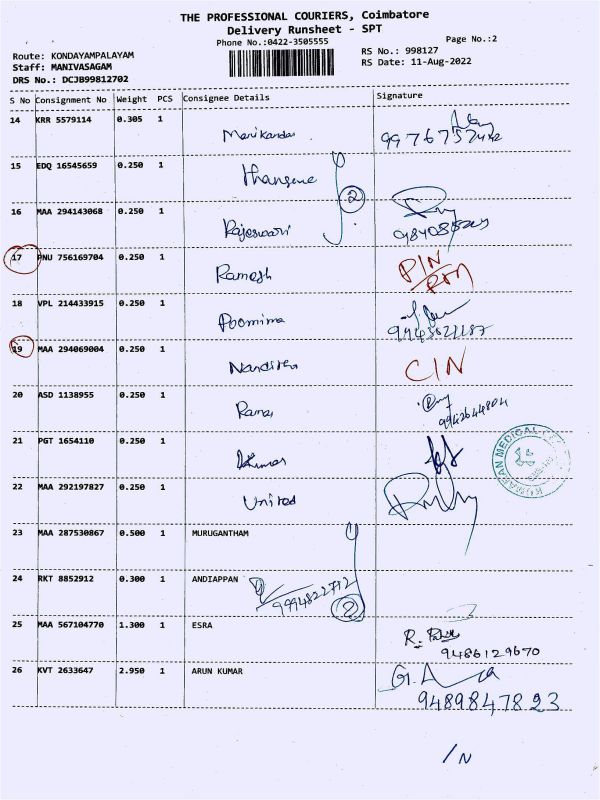 THE PROFESSIONAL COURIERS, Coimbatore
Delivery Runsheet - SPT
Phone No.:0422-3505555
Page No.:2
Route: KONDAYAMPALAYAM
RS No.: 998127
Staff: MANIVASAGAM
RS Date: 11-Aug-2022
DRS No.: DCJB99812702
S No Consignment No Weight PCS Consignee Details Signature
14 KRR 5579114 0.305 1 Manikandan
15 EDQ 16545659 0.250 1
2
16 MAA 294143068 0.250 1 Rajeswari
17 PNU 756169704 0.250 1 Ramesh PIN
18 VPL 214433915 0.250 1 Poornima
19 MAA 294069004 0.250 1 Nanditha CIN
20 ASD 1138955 0.250 1 Raman
9942644804
21 PGT 1654110 0.250 1 Kumar
22 MAA 292197827 0.250 1 United
23 MAA 287530867 0.500 1 MURUGANTHAM
24 RKT 8852912 0.300 1 ANDIAPPAN
9994822712
2
25 MAA 567104770 1.300 1 ESRA
9486129670
26 KVT 2633647 2.950 1 ARUN KUMAR
9489847823
/N